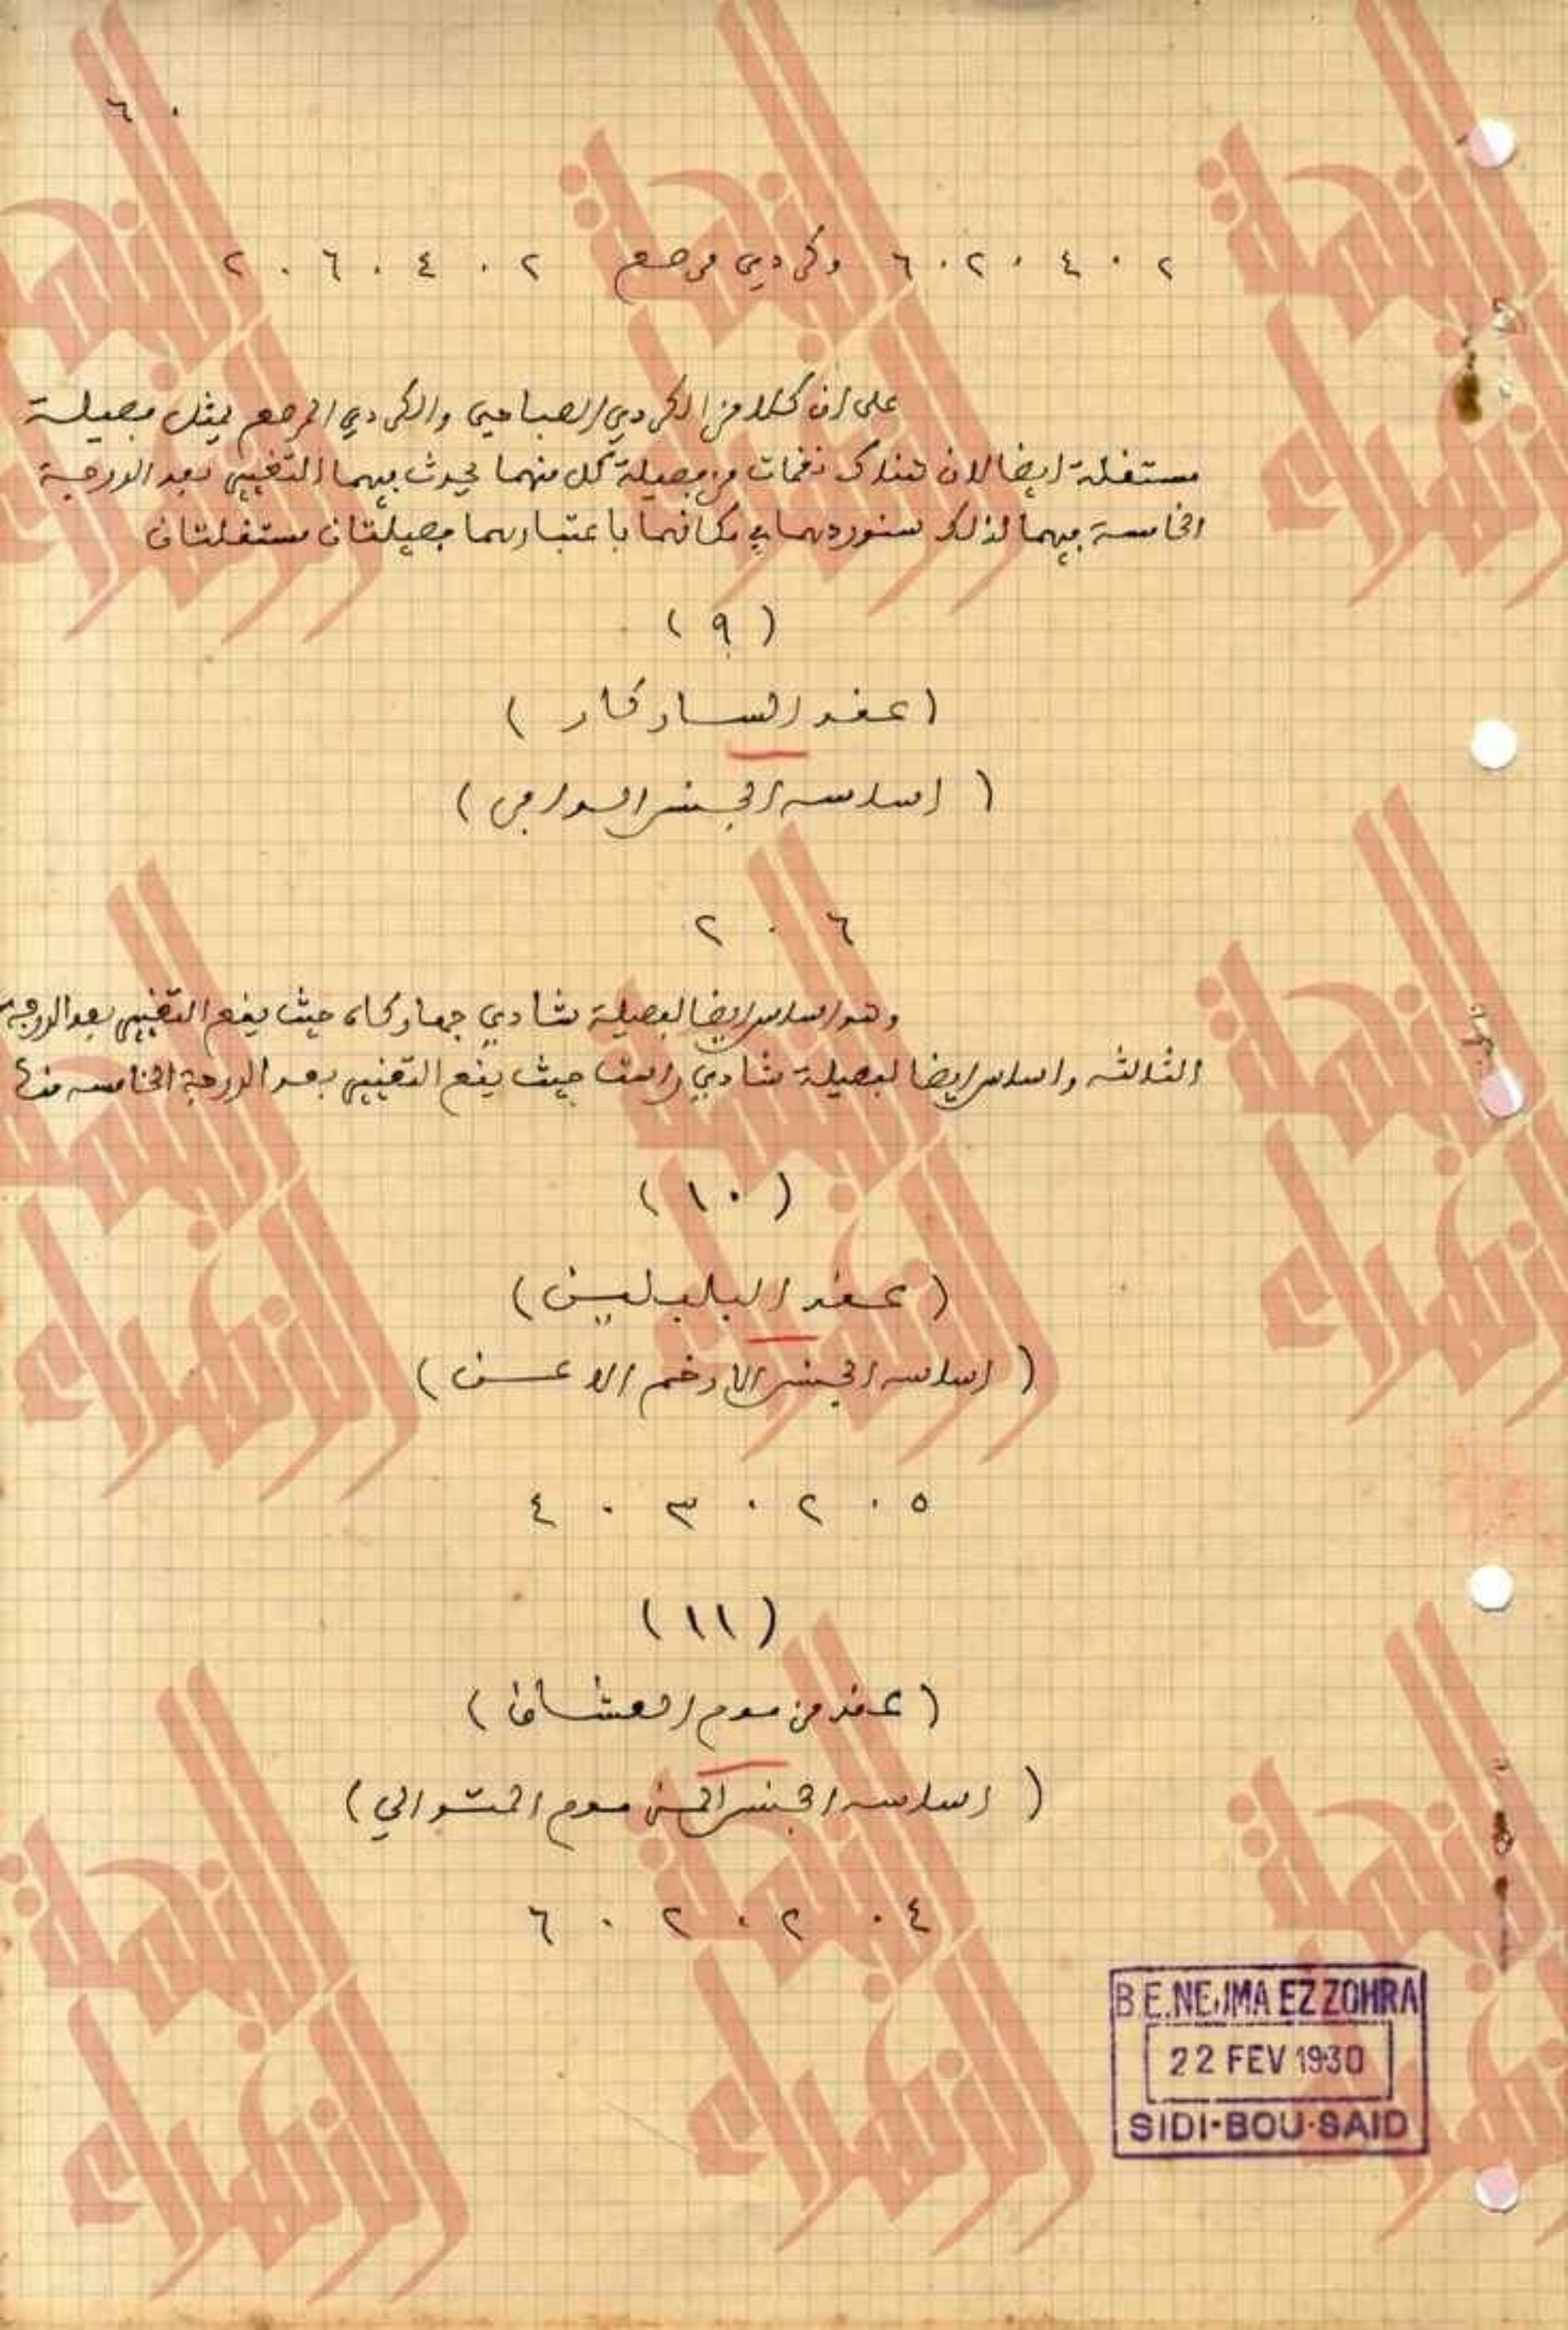 ٦٠
٢ . ٤ . ٢ . ٦ وكردي مرصع ٢ . ٤ . ٦ . ٢
على ان كلا من الكردي الصباحي والكردي المرصع يمثل فصيلة
مستقلة ايضا لان هناك نغمات من فصيلة كل منهما يحدث فيهما التغيير بعد الدرجة
الخامسة فيهما لذلك سنوردهما في مكانهما باعتبارهما فصيلتان مستقلتان
(٩)
(عقد السازكار)
(اساسه الجنس)
٦ . ٢
وهو اساس ايضا لفصيلة شادي جهاركاه حيث يقع التغيير بعد الدرجة
الثالثه واساس ايضا لفصيلة شادي راست حيث يقع التغيير بعد الدرجة الخامسه منها
(١٠)
(عقد)
(اساسه الجنس الارخم)
٥ . ٢ . ٣ . ٤
(١١)
(عقد من موم العشاق)
(اساسه الجنس المتوالي)
٤ . ٢ . ٢ . ٦
B.E.NEJMA EZZOHRA
22 FEV 1930
SIDI-BOU-SAID
النجمة الزهراء